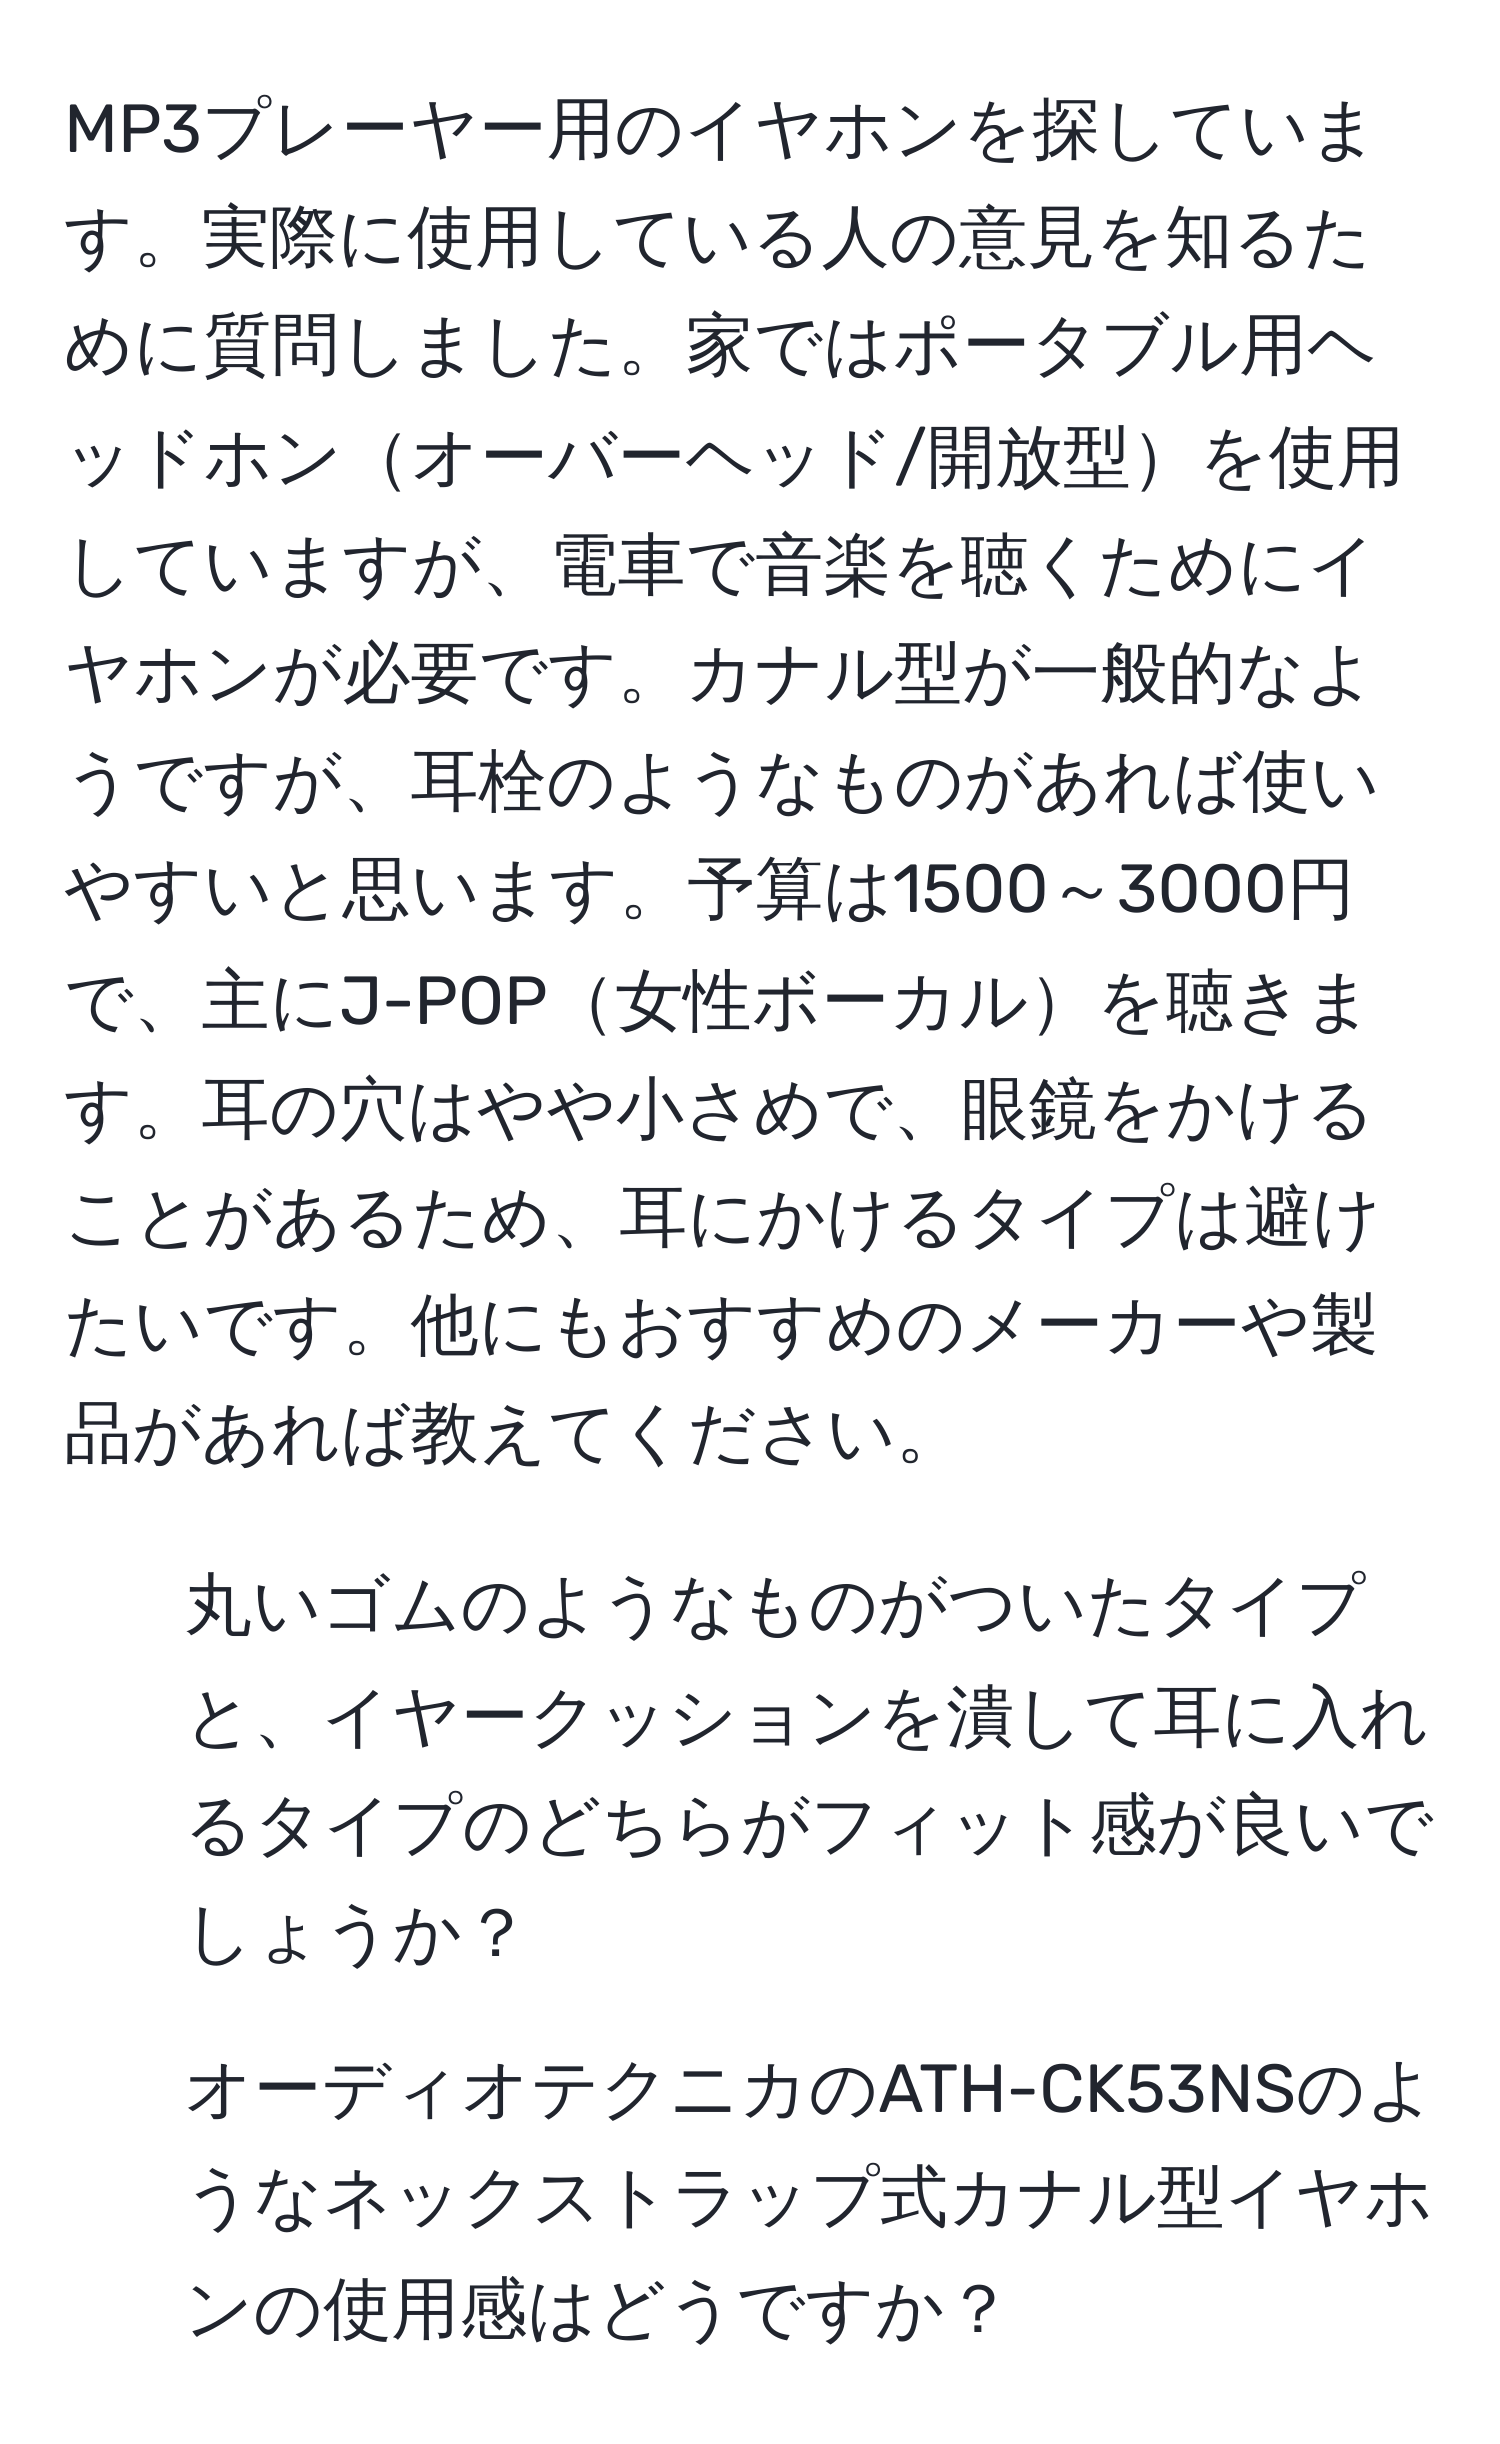 MP3プレーヤー用のイヤホンを探していま
す。実際に使用している人の意見を知るた
めに質問しました。家ではポータブル用ヘ
ッドホン（オーバーヘッド/開放型）を使用
していますが、電車で音楽を聴くためにイ
ヤホンが必要です。カナル型が一般的なよ
うですが、耳栓のようなものがあれば使い
やすいと思います。予算は1500～3000円
で、主にJ-POP（女性ボーカル）を聴きま
す。耳の穴はやや小さめで、眼鏡をかける
ことがあるため、耳にかけるタイプは避け
たいです。他にもおすすめのメーカーや製
品があれば教えてください。
丸いゴムのようなものがついたタイプ
と、イヤークッションを潰して耳に入れ
るタイプのどちらがフィット感が良いで
しょうか？
オーディオテクニカのATH-CK53NSのよ
うなネックストラップ式カナル型イヤホ
ンの使用感はどうですか？